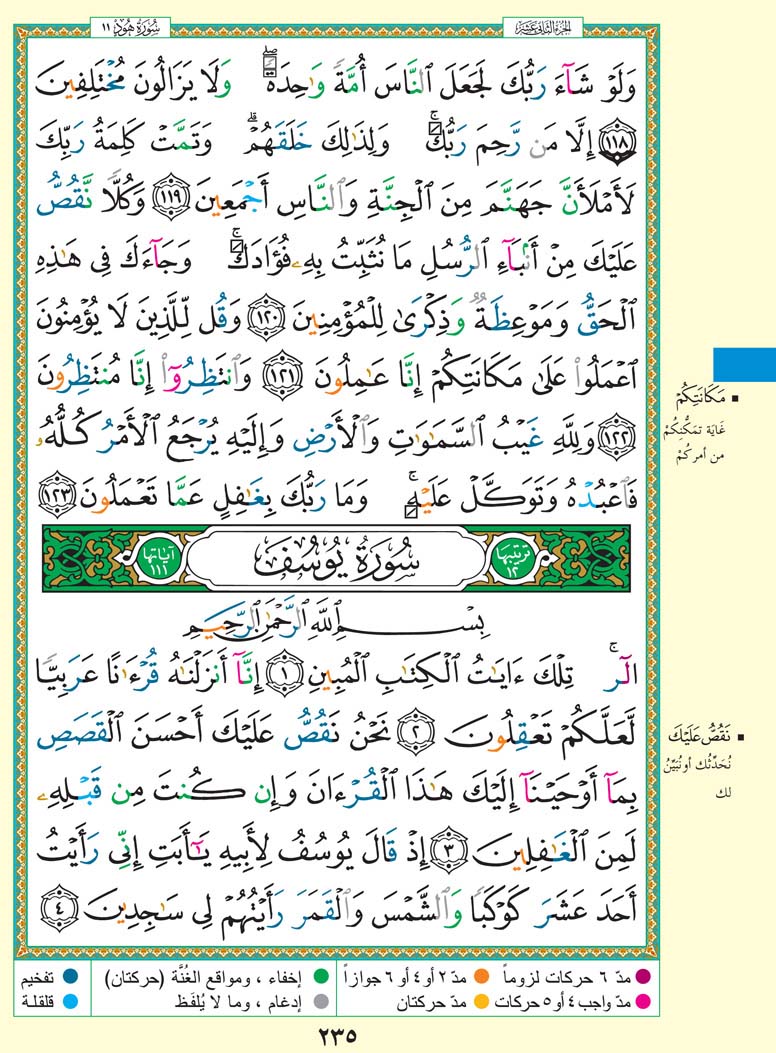 سُورَةُ هُودٍ ١١
الجزء الثاني عشر
وَلَوْ شَآءَ رَبُّكَ لَجَعَلَ ٱلنَّاسَ أُمَّةً وَٰحِدَةً ۖ وَلَا يَزَالُونَ مُخْتَلِفِينَ
١١٨ إِلَّا مَن رَّحِمَ رَبُّكَ ۚ وَلِذَٰلِكَ خَلَقَهُمْ ۗ وَتَمَّتْ كَلِمَةُ رَبِّكَ
لَأَمْلَأَنَّ جَهَنَّمَ مِنَ ٱلْجِنَّةِ وَٱلنَّاسِ أَجْمَعِينَ ١١٩ وَكُلًّا نَّقُصُّ
عَلَيْكَ مِنْ أَنۢبَآءِ ٱلرُّسُلِ مَا نُثَبِّتُ بِهِۦ فُؤَادَكَ ۚ وَجَآءَكَ فِى هَٰذِهِ
ٱلْحَقُّ وَمَوْعِظَةٌ وَذِكْرَىٰ لِلْمُؤْمِنِينَ ١٢٠ وَقُل لِّلَّذِينَ لَا يُؤْمِنُونَ
ٱعْمَلُوا۟ عَلَىٰ مَكَانَتِكُمْ إِنَّا عَٰمِلُونَ ١٢١ وَٱنتَظِرُوٓا۟ إِنَّا مُنتَظِرُونَ
١٢٢ وَلِلَّهِ غَيْبُ ٱلسَّمَٰوَٰتِ وَٱلْأَرْضِ وَإِلَيْهِ يُرْجَعُ ٱلْأَمْرُ كُلُّهُۥ
فَٱعْبُدْهُ وَتَوَكَّلْ عَلَيْهِ ۚ وَمَا رَبُّكَ بِغَٰفِلٍ عَمَّا تَعْمَلُونَ ١٢٣
ترتيبها ١٢ سُورَةُ يُوسُفَ آياتها ١١١
بِسْمِ ٱللَّهِ ٱلرَّحْمَٰنِ ٱلرَّحِيمِ
الٓر ۚ تِلْكَ ءَايَٰتُ ٱلْكِتَٰبِ ٱلْمُبِينِ ١ إِنَّآ أَنزَلْنَٰهُ قُرْءَٰنًا عَرَبِيًّا
لَّعَلَّكُمْ تَعْقِلُونَ ٢ نَحْنُ نَقُصُّ عَلَيْكَ أَحْسَنَ ٱلْقَصَصِ
بِمَآ أَوْحَيْنَآ إِلَيْكَ هَٰذَا ٱلْقُرْءَانَ وَإِن كُنتَ مِن قَبْلِهِۦ
لَمِنَ ٱلْغَٰفِلِينَ ٣ إِذْ قَالَ يُوسُفُ لِأَبِيهِ يَٰٓأَبَتِ إِنِّى رَأَيْتُ
أَحَدَ عَشَرَ كَوْكَبًا وَٱلشَّمْسَ وَٱلْقَمَرَ رَأَيْتُهُمْ لِى سَٰجِدِينَ ٤
▪ مَكَانَتِكُمْ
غَايَة تَمَكُّنِكُمْ
من أمركُمْ
▪ نَقُصُّ عَلَيْكَ
نُحَدِّثُك أو نُبَيِّنُ
لك
مدّ ٦ حركات لزوماً مدّ ٢ أو ٤ أو ٦ جوازاً إخفاء ، ومواقع الغُنَّة (حركتان) تفخيم
مدّ واجب ٤ أو ٥ حركات مدّ حركتان إدغام ، وما لا يُلفَظ قلقلة
٢٣٥